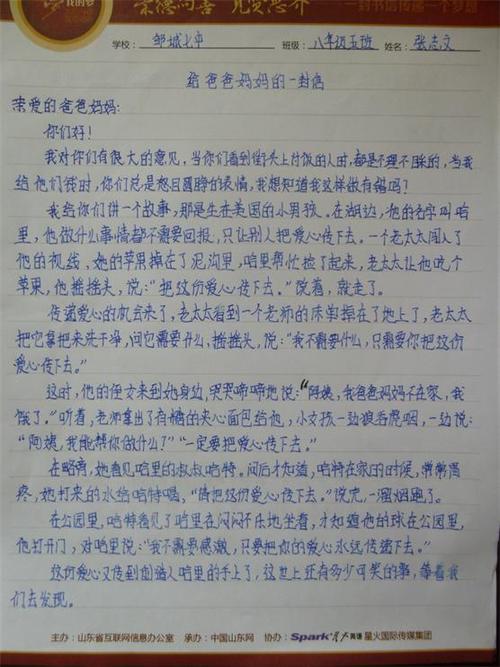 崇德向善 见贤思齐
一封书信传递一个梦想
学校: 邹城七中 班级: 八年级五班 姓名: 张志文
给爸爸妈妈的一封信
亲爱的爸爸妈妈:
你们好!
我对你们有很大的意见,当你们看到街头上讨饭的人时,都是不理不睬的,当我
给他们钱时,你们总是怒目圆睁的表情,我想知道我这样做有错吗?
我给你们讲一个故事,那是生在美国的小男孩。在湖边,他的名字叫哈
里,他做什么事情都不需要回报,只让别人把爱心传下去。一个老太太闯入了
他的视线,她的苹果掉在了泥沟里,哈里帮忙捡了起来,老太太让他吃个
苹果,他摇摇头,说:“把这份爱心传下去。”说着,就走了。
传递爱心的机会来了,老太太看到一个老师的床单掉在了地上了,老太太
把它拿起来洗干净,问它需要什么,摇摇头,说:“我不需要什么,只需要你把这份
爱心传下去。”
这时,他的侄女来到她身边,哭哭啼啼地说:“阿姨,我爸爸妈妈不在家,我
饿了。”听着,老师拿出了有糖的夹心面包给他,小女孩一边狼吞虎咽,一边说:
“阿姨,我能帮你做什么?”“一定要把爱心传下去。”
在路旁,她看见哈里的叔叔哈特。问后才知道,哈特在家的时候,常常胃
疼,她打来的水给哈特喝,“请把这份爱心传下去。”说完,一溜烟跑了。
在公园里,哈特看见了哈里在闷闷不乐地坐着,才知道他的球在公园里,
他打开门,对哈里说:“我不需要感激,只要把你的爱心永远传递下去。”
这份爱心又传到创造人哈里的手上了,这世上还有多少可笑的事,等着我
们去发现。
主办:山东省互联网信息办公室 承办:中国山东网 协办:Spark星火英语 星火国际传媒集团